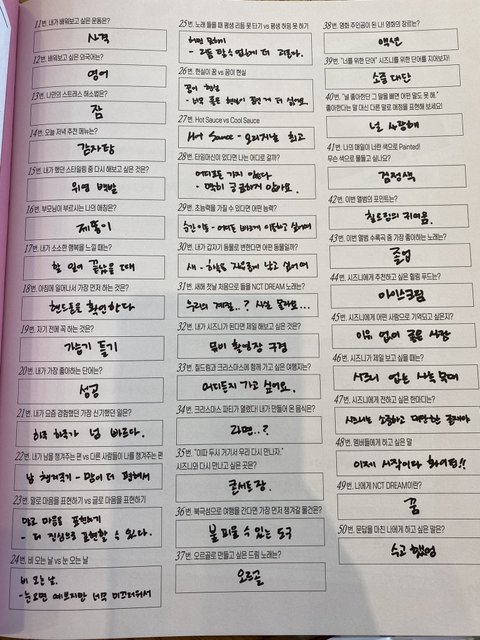 11번. 내가 배워보고 싶은 운동은?
사격
12번. 배워보고 싶은 외국어는?
영어
13번. 나만의 스트레스 해소법은?
잠
14번. 오늘 저녁 추천 메뉴는?
감자탕
15번. 내가 했던 스타일링 중 다시 해보고 싶은 것은?
위영 백발
16번. 부모님이 부르시는 나의 애칭은?
제똘이
17번. 내가 소소한 행복을 느낄 때는?
할 일이 끝났을 때
18번. 아침에 일어나서 가장 먼저 하는 것은?
핸드폰을 확인한다
19번. 자기 전에 꼭 하는 것은?
가습기 틀기
20번. 내가 가장 좋아하는 단어는?
성공
21번. 내가 요즘 경험했던 가장 신기했던 일은?
하루 하루가 넘 빠르다.
22번. 내가 남을 챙겨주는 편 vs 다른 사람들이 나를 챙겨주는 편
남 챙겨주기 - 맘이 더 편해서
23번. 말로 마음을 표현하기 vs 글로 마음을 표현하기
말로 마음을 표현하기
- 더 진심으로 표현할 수 있다.
24번. 비 오는 날 vs 눈 오는 날
비 오는 날.
- 눈오면 예쁘지만 너무 미끄러워서
25번. 노래 들을 때 평생 리듬 못 타기 vs 평생 허밍 못 하기
허밍 못하기
- 리듬 탈 수 없는게 더 괴롭다.
26번. 현실이 꿈 vs 꿈이 현실
꿈이 현실
27번. Hot Sauce vs Cool Sauce
Hot Sauce - 오리지널 최고
28번. 타임머신이 있다면 나는 어디로 갈까?
어디로든 가지 않는다
- 딱히 궁금하지 않아요.
29번. 초능력을 가질 수 있다면 어떤 능력?
순간이동 - 어디든 빠르게 이동하고 싶어여
30번. 내가 갑자기 동물로 변한다면 어떤 동물일까?
새 - 하늘을 자유롭게 날고 싶어여
31번. 새해 첫날 처음으로 들을 NCT DREAM 노래는?
우리의 계절..? 사실 몰라요...
32번. 내가 시즈니가 된다면 제일 해보고 싶은 것은?
뮤비 촬영장 구경
33번. 칠드림과 크리스마스에 함께 가고 싶은 여행지는?
어디든지 가고 싶어요.
34번. 크리스마스 파티가 열렸다! 내가 만들어 온 음식은?
라면..?
35번. "이따 두시 거기서 우리 다시 만나자."
시즈니와 다시 만나고 싶은 곳은?
콘서트장.
36번. 북극섬으로 여행을 간다면 가장 먼저 챙겨갈 물건은?
불 피울 수 있는 도구
37번. 오르골로 만들고 싶은 드림 노래는?
오르골
38번. 영화 주인공이 된 나! 영화의 장르는?
액션
39번. '너를 위한 단어' 시즈니를 위한 단어를 지어보자!
소중 대단
40번. "널 좋아한단 그 말을 빼면 어떤 말도 못 해."
좋아한다는 말 대신 다른 말로 애정을 표현해 보세요!
널 사랑해
41번. 나의 매일이 너란 색으로 Painted!
무슨 색으로 물들고 싶나요?
검정색
42번. 이번 앨범의 포인트는?
칠드림의 귀여움.
43번. 이번 앨범 수록곡 중 가장 좋아하는 노래는?
졸업
44번. 시즈니에게 추천하고 싶은 힐링 푸드는?
아이스크림
45번. 시즈니에게 어떤 사람으로 기억되고 싶은지?
이유 없이 좋은 사람
46번. 시즈니가 제일 보고 싶을 때는?
시즈니 없는 사녹 무대
47번. 시즈니에게 전하고 싶은 한마디는?
시즈니는 소중하고 대단한 존재야
48번. 멤버들에게 하고 싶은 말
이제 시작이다 화이팅!!
49번. 나에게 NCT DREAM이란?
꿈
50번. 문답을 마친 나에게 하고 싶은 말은?
수고 했엉